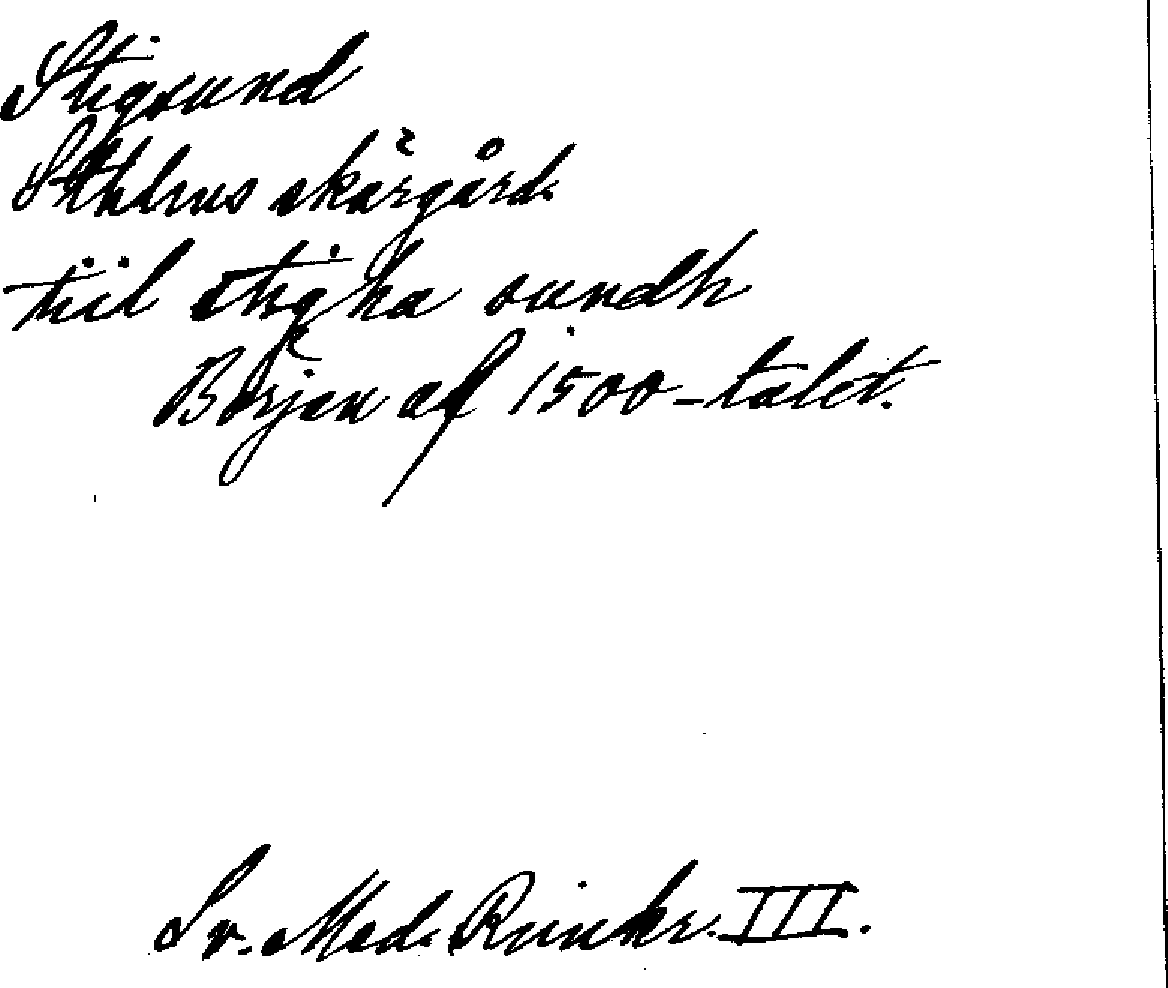 Stigsund
Sthlms skärgård.
tiil stigha sundh
Början af 1500-talet.
Sv. Med. Rimkr. III.